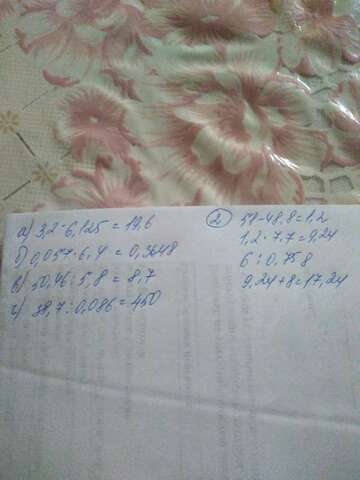 а) 3,2·6,125=19,6
б) 0,057·6,4=0,3648
в) 50,46:5,8=8,7
г) 38,7:0,086=450
2.
50-48,8=1,2
1,2·7,7=9,24
6:0,75 8
9,24+8=17,24